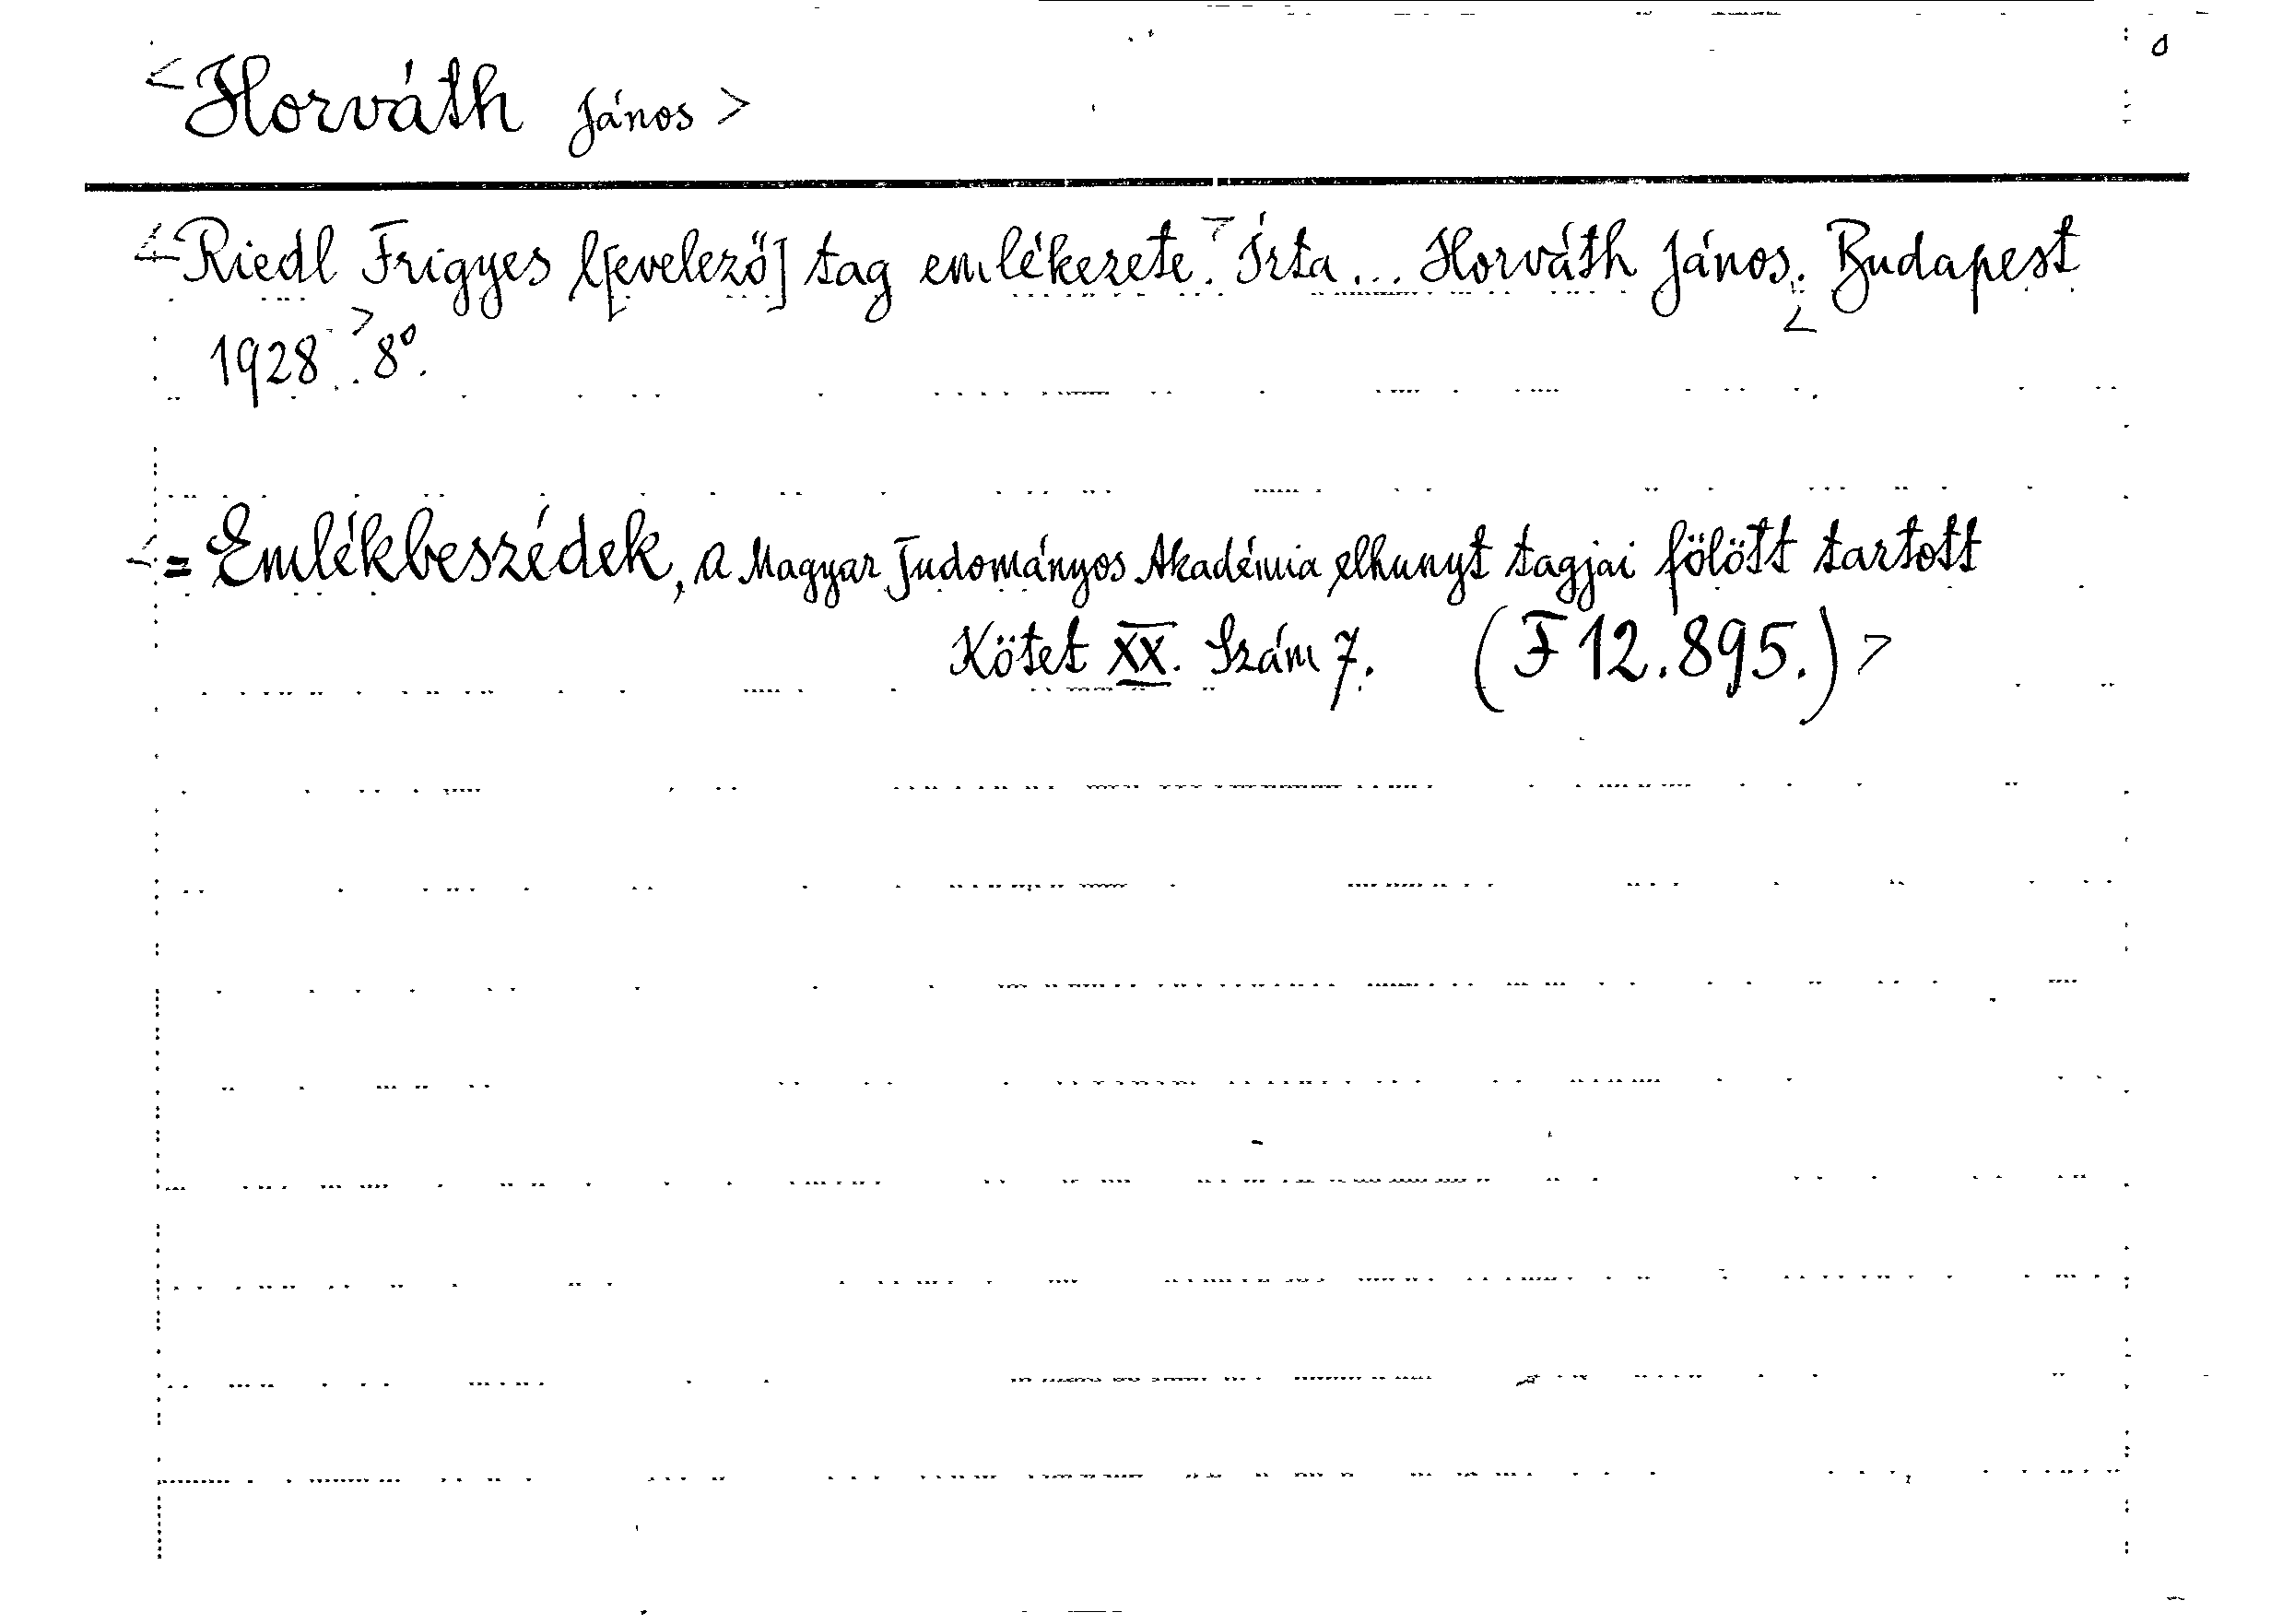 <Horváth János>
<Riedl Frigyes l[evelező] tag emlékezete.> Írta ... Horváth János. <Budapest
1928.> 8°.
<= Emlékbeszédek, a Magyar Tudományos Akadémia elhunyt tagjai fölött tartott
Kötet XX. Szám 7. (F 12.895.)>